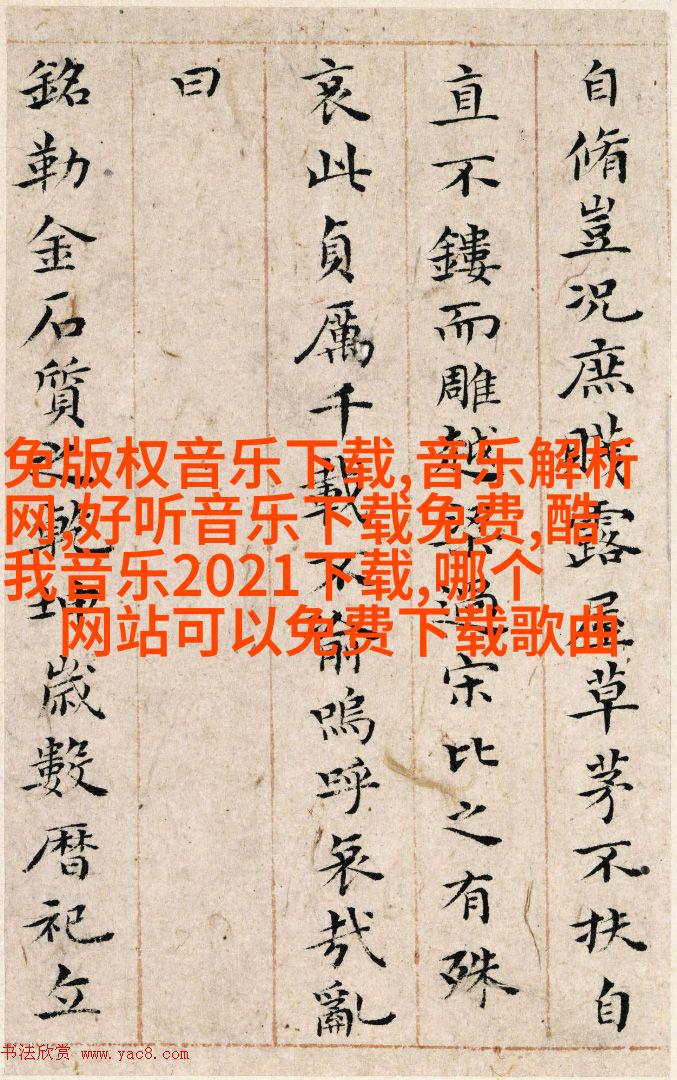 自脩豈況庶賤露屋草茅不扶自
直不鏤而雕越梁過宋比之有殊
哀此貞厲千載不渝嗚呼哀哉亂
曰
銘勒金石質之乾坤歲數曆祀立
免版权音乐下载,音乐解析
网,好听音乐下载免费,酷
我音乐2021下载,哪个
网站可以免费下载歌曲
书法欣赏 www.yac8.com